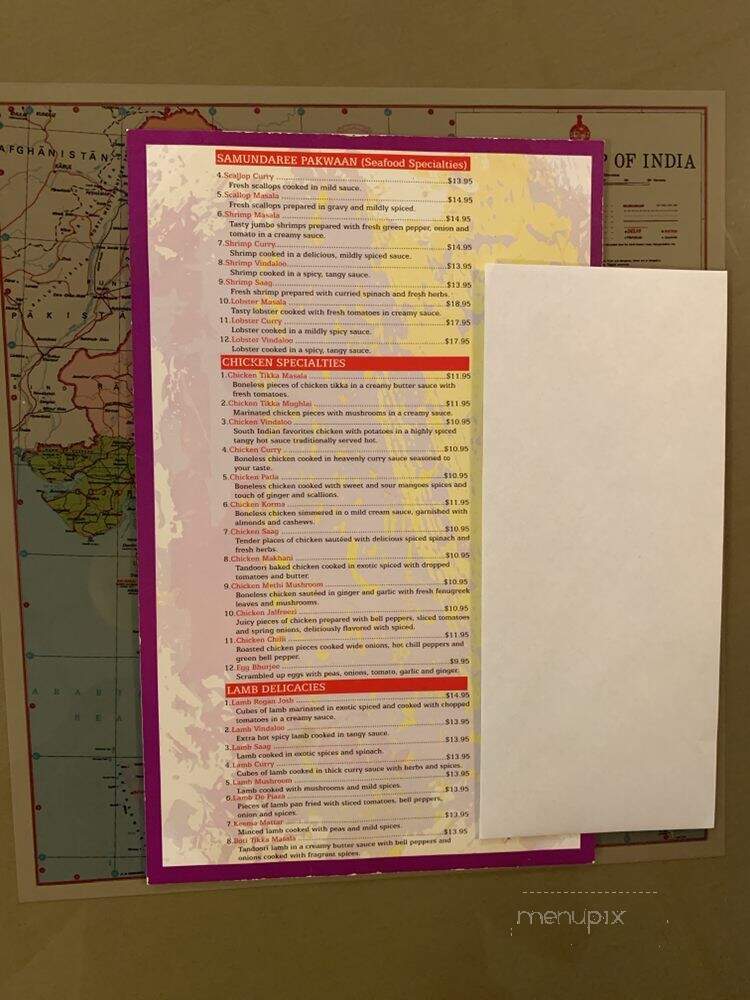 AFGHĀNISTĀN
KĀBUL
PĀKISTĀ
ARAB
SEA
P OF INDIA
SAMUNDAREE PAKWAAN (Seafood Specialties)
4.Scallop Curry ........ $13.95
Fresh scallops cooked in mild sauce.
5.Scallop Masala ........ $14.95
Fresh scallops prepared in gravy and mildly spiced.
6.Shrimp Masala ........ $14.95
Tasty jumbo shrimps prepared with fresh green pepper, onion and
tomato in a creamy sauce.
7.Shrimp Curry ........ $14.95
Shrimp cooked in a delicious, mildly spiced sauce.
8.Shrimp Vindaloo ........ $13.95
Shrimp cooked in a spicy, tangy sauce.
9.Shrimp Saag ........ $13.95
Fresh shrimp prepared with curried spinach and fresh herbs.
10.Lobster Masala ........ $18.95
Tasty lobster cooked with fresh tomatoes in creamy sauce.
11.Lobster Curry ........ $17.95
Lobster cooked in a mildly spicy sauce.
12.Lobster Vindaloo ........ $17.95
Lobster cooked in a spicy, tangy sauce.
CHICKEN SPECIALTIES
1.Chicken Tikka Masala ........ $11.95
Boneless pieces of chicken tikka in a creamy butter sauce with
fresh tomatoes.
2.Chicken Tikka Mughlai ........ $11.95
Marinated chicken pieces with mushrooms in a creamy sauce.
3.Chicken Vindaloo ........ $10.95
South Indian favorites chicken with potatoes in a highly spiced
tangy hot sauce traditionally served hot.
4.Chicken Curry ........ $10.95
Boneless chicken cooked in heavenly curry sauce seasoned to
your taste.
5.Chicken Patia ........ $10.95
Boneless chicken cooked with sweet and sour mangoes spices and
touch of ginger and scallions.
6.Chicken Korma ........ $11.95
Boneless chicken simmered in a mild cream sauce, garnished with
almonds and cashews.
7.Chicken Saag ........ $10.95
Tender places of chicken sautéed with delicious spiced spinach and
fresh herbs.
8.Chicken Makhani ........ $10.95
Tandoori baked chicken cooked in exotic spiced with dropped
tomatoes and butter.
9.Chicken Methi Mushroom ........ $10.95
Boneless chicken sautéed in ginger and garlic with fresh fenugreek
leaves and mushrooms.
10.Chicken Jalfreezi ........ $10.95
Juicy pieces of chicken prepared with bell peppers, sliced tomatoes
and spring onions, deliciously flavored with spiced.
11.Chicken Chilli ........ $11.95
Roasted chicken pieces cooked wide onions, hot chill peppers and
green bell pepper.
12.Egg Bhurjee ........ $9.95
Scrambled up eggs with peas, onions, tomato, garlic and ginger.
LAMB DELICACIES
1.Lamb Rogan Josh ........ $14.95
Cubes of lamb marinated in exotic spiced and cooked with chopped
tomatoes in a creamy sauce.
2.Lamb Vindaloo ........ $13.95
Extra hot spicy lamb cooked in tangy sauce.
3.Lamb Saag ........ $13.95
Lamb cooked in exotic spices and spinach.
4.Lamb Curry ........ $13.95
Cubes of lamb cooked in thick curry sauce with herbs and spices.
5.Lamb Mushroom ........ $13.95
Lamb cooked with mushrooms and mild spices.
6.Lamb Do Piaza ........ $13.95
Pieces of lamb pan fried with sliced tomatoes, bell peppers,
onion and spices.
7.Keema Mattar ........ $13.95
Minced lamb cooked with peas and mild spices.
8.Boti Tikka Masala ........ $13.95
Tandoori lamb in a creamy butter sauce with bell peppers and
onions cooked with fragrant spices.
menupix